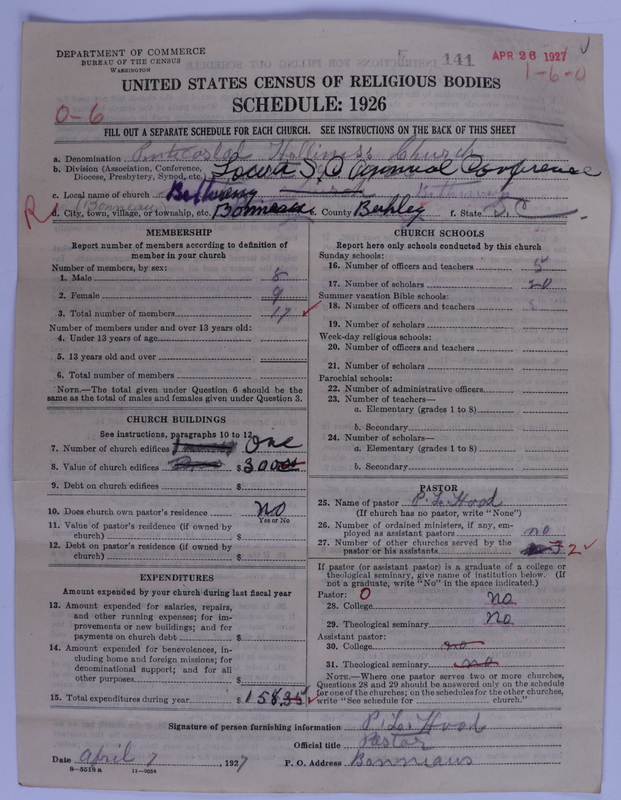 DEPARTMENT OF COMMERCE
BUREAU OF THE CENSUS
WASHINGTON
141
APR 26 1927
1-6-0
UNITED STATES CENSUS OF RELIGIOUS BODIES
0-6
SCHEDULE: 1926
FILL OUT A SEPARATE SCHEDULE FOR EACH CHURCH. SEE INSTRUCTIONS ON THE BACK OF THIS SHEET
a. Denomination Pentecostal Holliness Church
b. Division (Association, Conference, Diocese, Presbytery, Synod, etc.) S.C. Annual Conference
c. Local name of church Bethany
d. City, town, village, or township, etc. Bonneau e. County Berkley f. State S.C.
MEMBERSHIP
Report number of members according to definition of
member in your church
Number of members, by sex:
1. Male 8
2. Female 9
3. Total number of members 17
Number of members under and over 13 years old:
4. Under 13 years of age
5. 13 years old and over
6. Total number of members
NOTE.—The total given under Question 6 should be the
same as the total of males and females given under Question 3.
CHURCH BUILDINGS
See instructions, paragraphs 10 to 12
7. Number of church edifices One
8. Value of church edifices $ 300
9. Debt on church edifices $
10. Does church own pastor's residence No
Yes or No
11. Value of pastor's residence (if owned by
church) $
12. Debt on pastor's residence (if owned by
church) $
EXPENDITURES
Amount expended by your church during last fiscal year
13. Amount expended for salaries, repairs,
and other running expenses; for im-
provements or new buildings; and for
payments on church debt $
14. Amount expended for benevolences, in-
cluding home and foreign missions; for
denominational support; and for all
other purposes $
15. Total expenditures during year $ 158.35
CHURCH SCHOOLS
Report here only schools conducted by this church
Sunday schools:
16. Number of officers and teachers 5
17. Number of scholars 20
Summer vacation Bible schools:
18. Number of officers and teachers
19. Number of scholars
Week-day religious schools:
20. Number of officers and teachers
21. Number of scholars
Parochial schools:
22. Number of administrative officers
23. Number of teachers—
a. Elementary (grades 1 to 8)
b. Secondary
24. Number of scholars—
a. Elementary (grades 1 to 8)
b. Secondary
PASTOR
25. Name of pastor P. L. Hood
(If church has no pastor, write "None")
26. Number of ordained ministers, if any, em-
ployed as assistant pastors no
27. Number of other churches served by the
pastor or his assistants 2
If pastor (or assistant pastor) is a graduate of a college or
theological seminary, give name of institution below. (If
not a graduate, write "No" in the space indicated.)
Pastor: 0
28. College no
29. Theological seminary no
Assistant pastor:
30. College no
31. Theological seminary no
NOTE.—Where one pastor serves two or more churches,
Questions 28 and 29 should be answered only on the schedule
for one of the churches; on the schedules for the other churches,
write "See schedule for church."
Signature of person furnishing information P. L. Hood
Official title Pastor
Date April 7, 1927 P. O. Address
8-5518 a 11-9054